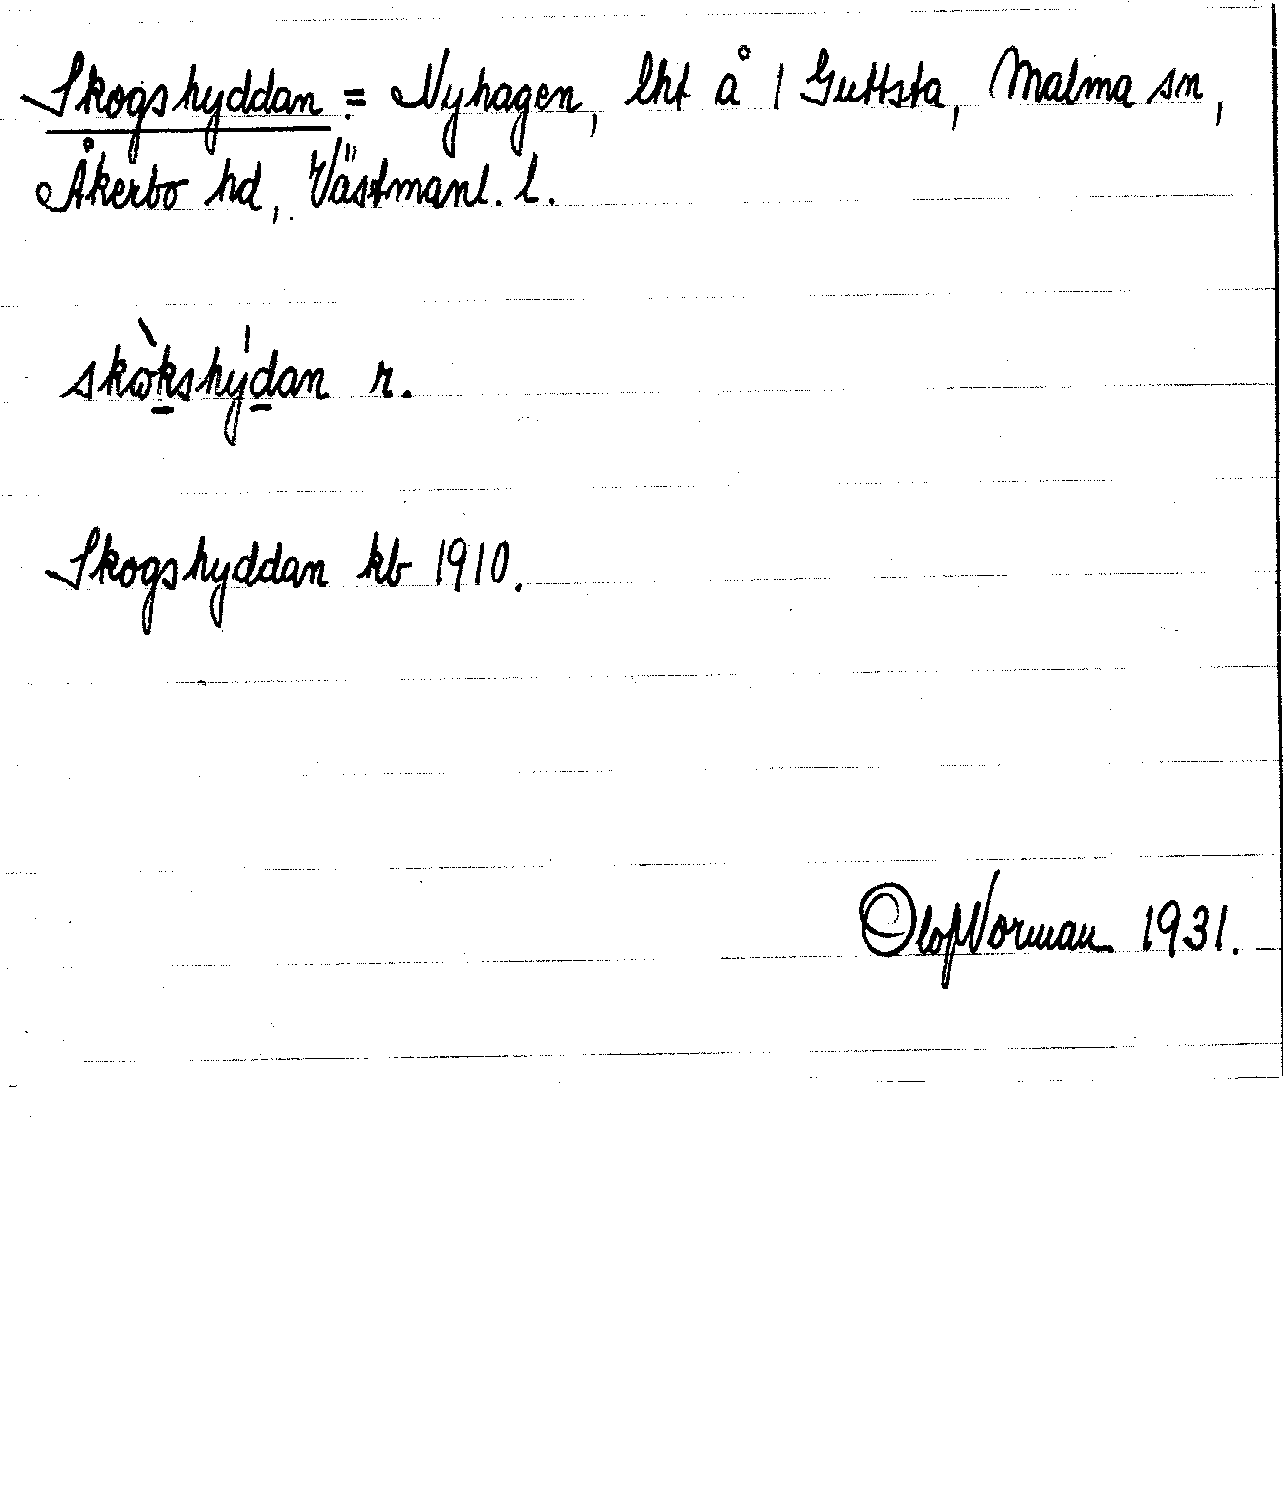 Skogshyddan = Nyhagen, lht å 1 Guttsta, Malma sn,
Åkerbo hd, Västmanl. l.
skɷ̀ks̱hýḏan r.
Skogshyddan kb 1910.
Olof Norman 1931.